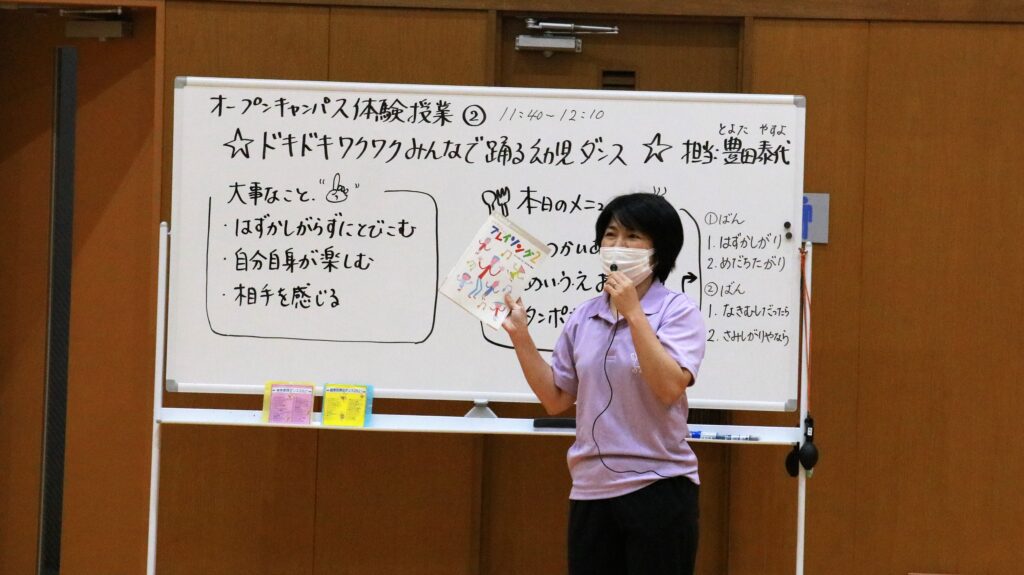 オープンキャンパス体験授業 ② 11:40~12:10
とよた やすよ
☆ドキドキワクワクみんなで踊る幼児ダンス☆ 担当:豊田泰代
大事なこと、
・はずかしがらずにとびこむ
・自分自身が楽しむ
・相手を感じる
本日のメニュ
つかい
めいうえお
タンポ
①ばん
1. はずかしがり
2. めだちたがり
②ばん
1. なきむしだったら
2. さみしがりやなら
プレイソング2